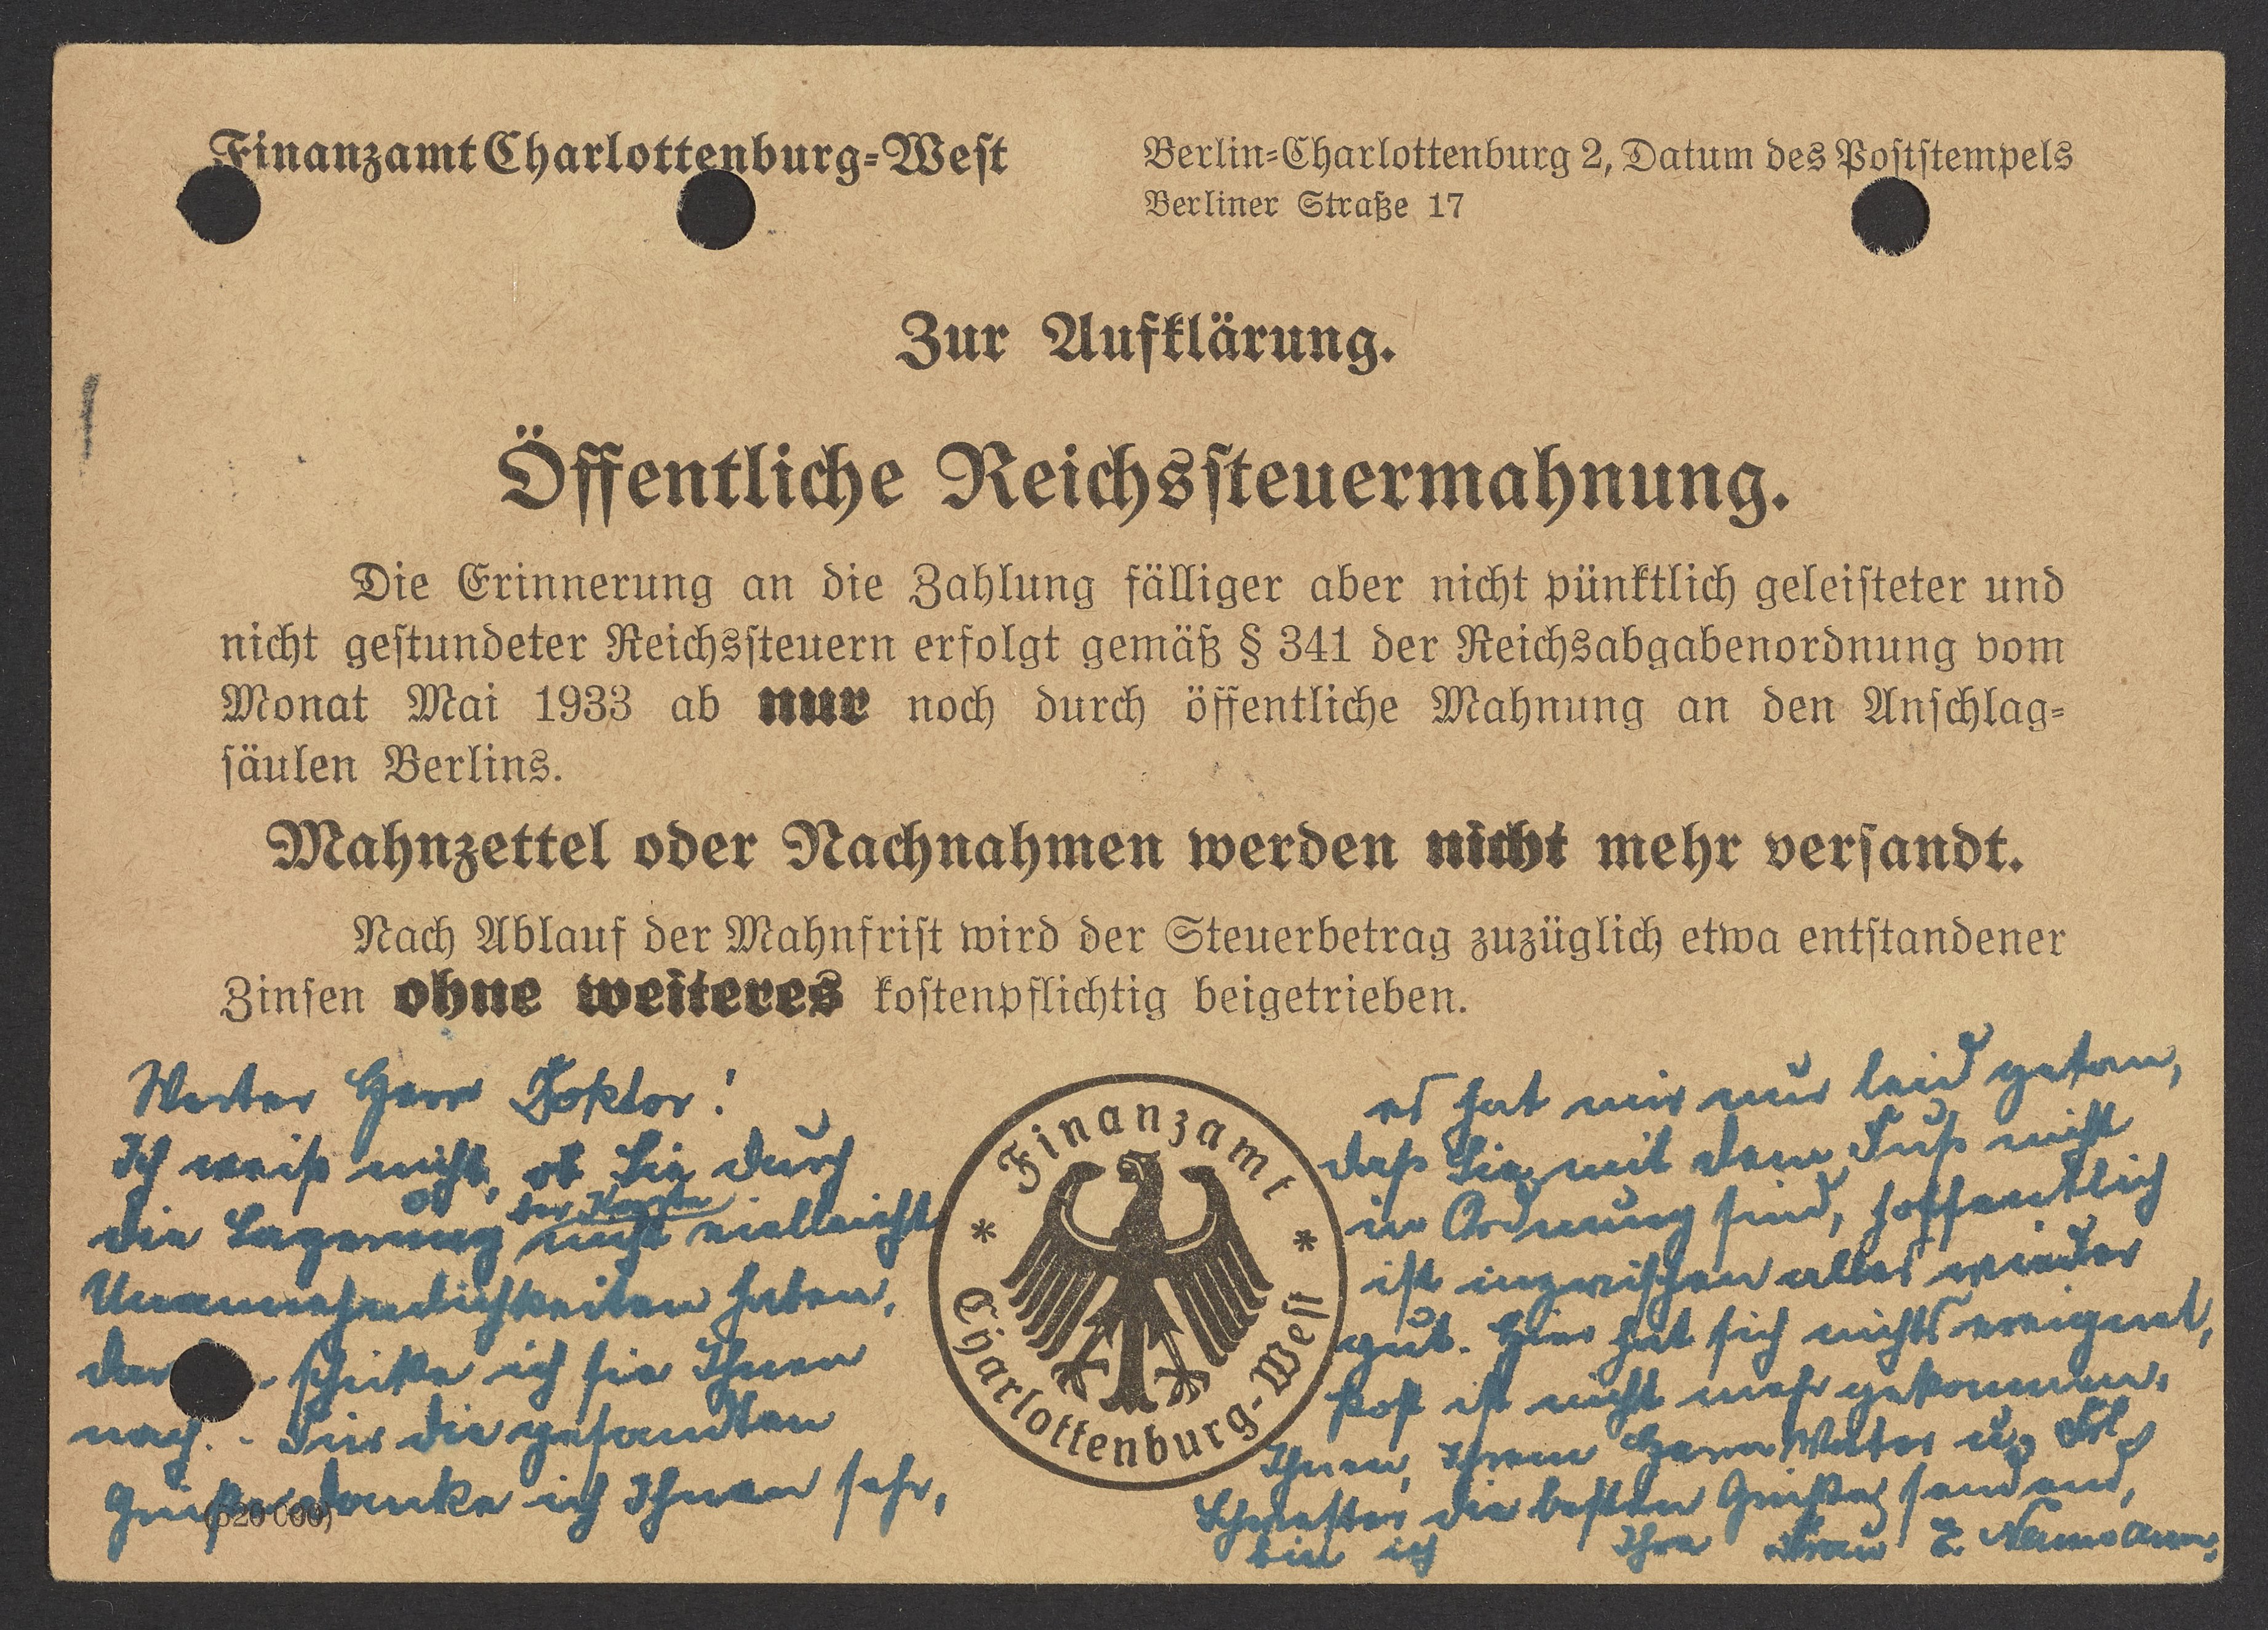 Finanzamt Charlottenburg-West
Berlin-Charlottenburg 2, Datum des Poststempels
Berliner Straße 17
Zur Aufklärung.
Öffentliche Reichssteuermahnung.
Die Erinnerung an die Zahlung fälliger aber nicht pünktlich geleisteter und
nicht gestundeter Reichssteuern erfolgt gemäß § 341 der Reichsabgabenordnung vom
Monat Mai 1933 ab nur noch durch öffentliche Mahnung an den Anschlag-
säulen Berlins.
Mahnzettel oder Nachnahmen werden nicht mehr versandt.
Nach Ablauf der Mahnfrist wird der Steuerbetrag zuzüglich etwa entstandener
Zinsen ohne weiteres kostenpflichtig beigetrieben.
Werter Herr Doktor!
Ich weiß nicht, ob Sie durch
die Lagerung der Karte nicht vielleicht
Unannehmlichkeiten haben,
schicke ich sie Ihnen
nach. - Für die gesandten
Grüße danke ich Ihnen sehr,
(520 000)
Finanzamt
* *
Charlottenburg-West
es hat mir nur leid getan,
daß Sie mit dem Fuß nicht
in Ordnung sind, hoffentlich
ist inzwischen alles wieder
gut. Hier hat sich nichts ereignet,
Post ist nicht mehr gekommen.
Ihnen, Ihrem Herrn Vater u. Frl.
Schwester die besten Grüße sendend,
bin ich Ihre Frau E. Neumann.